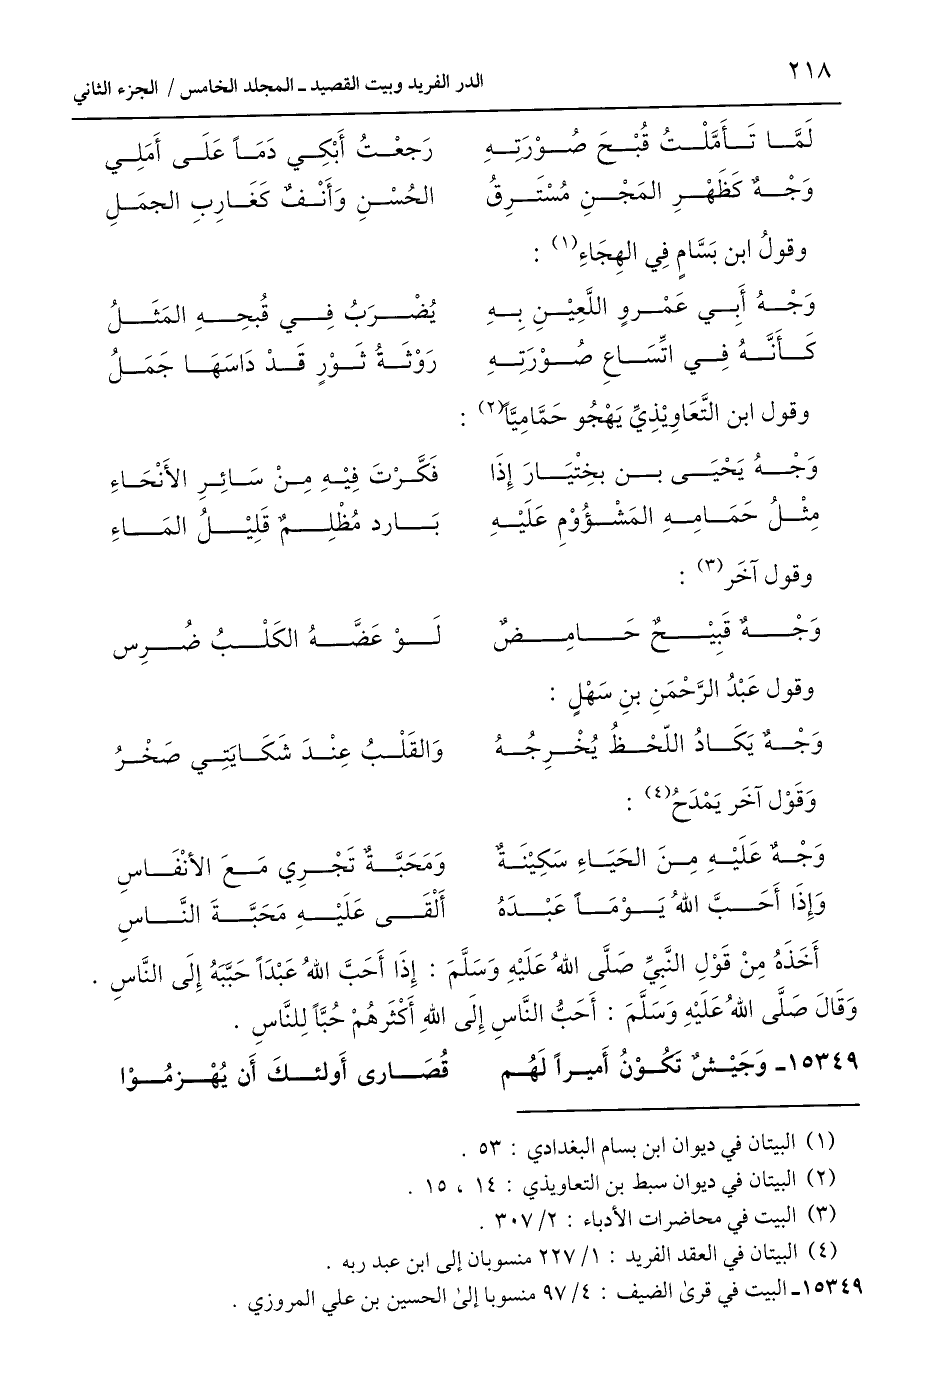 ٢١٨
الدر الفريد وبيت القصيد ـ المجلد الخامس / الجزء الثاني
لَمَّا تَأَمَّلْتُ قُبْحَ صُوْرَتِهِ رَجعْتُ أَبْكِي دَمَاً عَلَى أَمَلِي
وَجْهٌ كَظَهْرِ المَجْنِ مُسْتَرِقُ الحُسْنِ وَأَنْفٌ كَغَارِبِ الجمَلِ
وقولُ ابن بَسَّامٍ فِي الهِجَاءِ(١) :
وَجْهُ أَبِي عَمْرٍو اللَّعِيْنِ بِهِ يُضْرَبُ فِي قُبحِهِ المَثَلُ
كَأَنَّهُ فِي اتِّسَاعِ صُوْرَتِهِ رَوْثَةُ ثَوْرٍ قَدْ دَاسَهَا جَمَلُ
وقول ابن التَّعَاوِيْذِيِّ يَهْجُو حَمَّامِيَّاً(٢) :
وَجْهُ يَحْيَى بنِ بخِتْيَارَ إِذَا فَكَّرْتَ فِيْهِ مِنْ سَائِرِ الأَنْحَاءِ
مِثْلُ حَمَامِهِ المَشْؤُوْمِ عَلَيْهِ بَارد مُظْلِمٌ قَلِيْلُ المَاءِ
وقول آخَر(٣) :
وَجْهٌ قَبِيْحٌ حَامِضٌ لَوْ عَضَّهُ الكَلْبُ ضُرِس
وقول عَبْدُ الرَّحْمَنِ بنِ سَهْلٍ :
وَجْهٌ يَكَادُ اللّحْظُ يُخْرِجُهُ وَالقَلْبُ عِنْدَ شَكَايَتِي صَخْرُ
وَقَوْل آخَر يَمْدَحُ(٤) :
وَجْهٌ عَلَيْهِ مِنَ الحَيَاءِ سَكِيْنَةٌ وَمَحَبَّةٌ تَجْرِي مَعَ الأَنْفَاسِ
وَإِذَا أَحَبَّ اللهُ يَوْمَاً عَبْدَهُ أَلْقَى عَلَيْهِ مَحَبَّةَ النَّاسِ
أَخَذَهُ مِنْ قَوْلِ النَّبِيِّ صَلَّى اللهُ عَلَيْهِ وَسَلَّمَ : إِذَا أَحَبَّ اللهُ عَبْدَاً حَبَّبَهُ إِلَى النَّاسِ .
وَقَالَ صَلَّى اللهُ عَلَيْهِ وَسَلَّمَ : أَحَبُّ النَّاسِ إِلَى اللهِ أَكْثَرهُمْ حُبَّاً لِلنَّاسِ .
١٥٣٤٩ـ وَجَيْشٌ تَكُوْنُ أَميراً لَهُم قُصَارى أَولئكَ أَن يُهْزِمُوْا
(١) البيتان في ديوان ابن بسام البغدادي : ٥٣ .
(٢) البيتان في ديوان سبط بن التعاويذي : ١٤ ، ١٥ .
(٣) البيت في محاضرات الأدباء : ٢/ ٣٠٧ .
(٤) البيتان في العقد الفريد : ١/ ٢٢٧ منسوبان إلى ابن عبد ربه .
١٥٣٤٩ـ البيت في قرى الضيف : ٤/ ٩٧ منسوبا إلى الحسين بن علي المروزي .